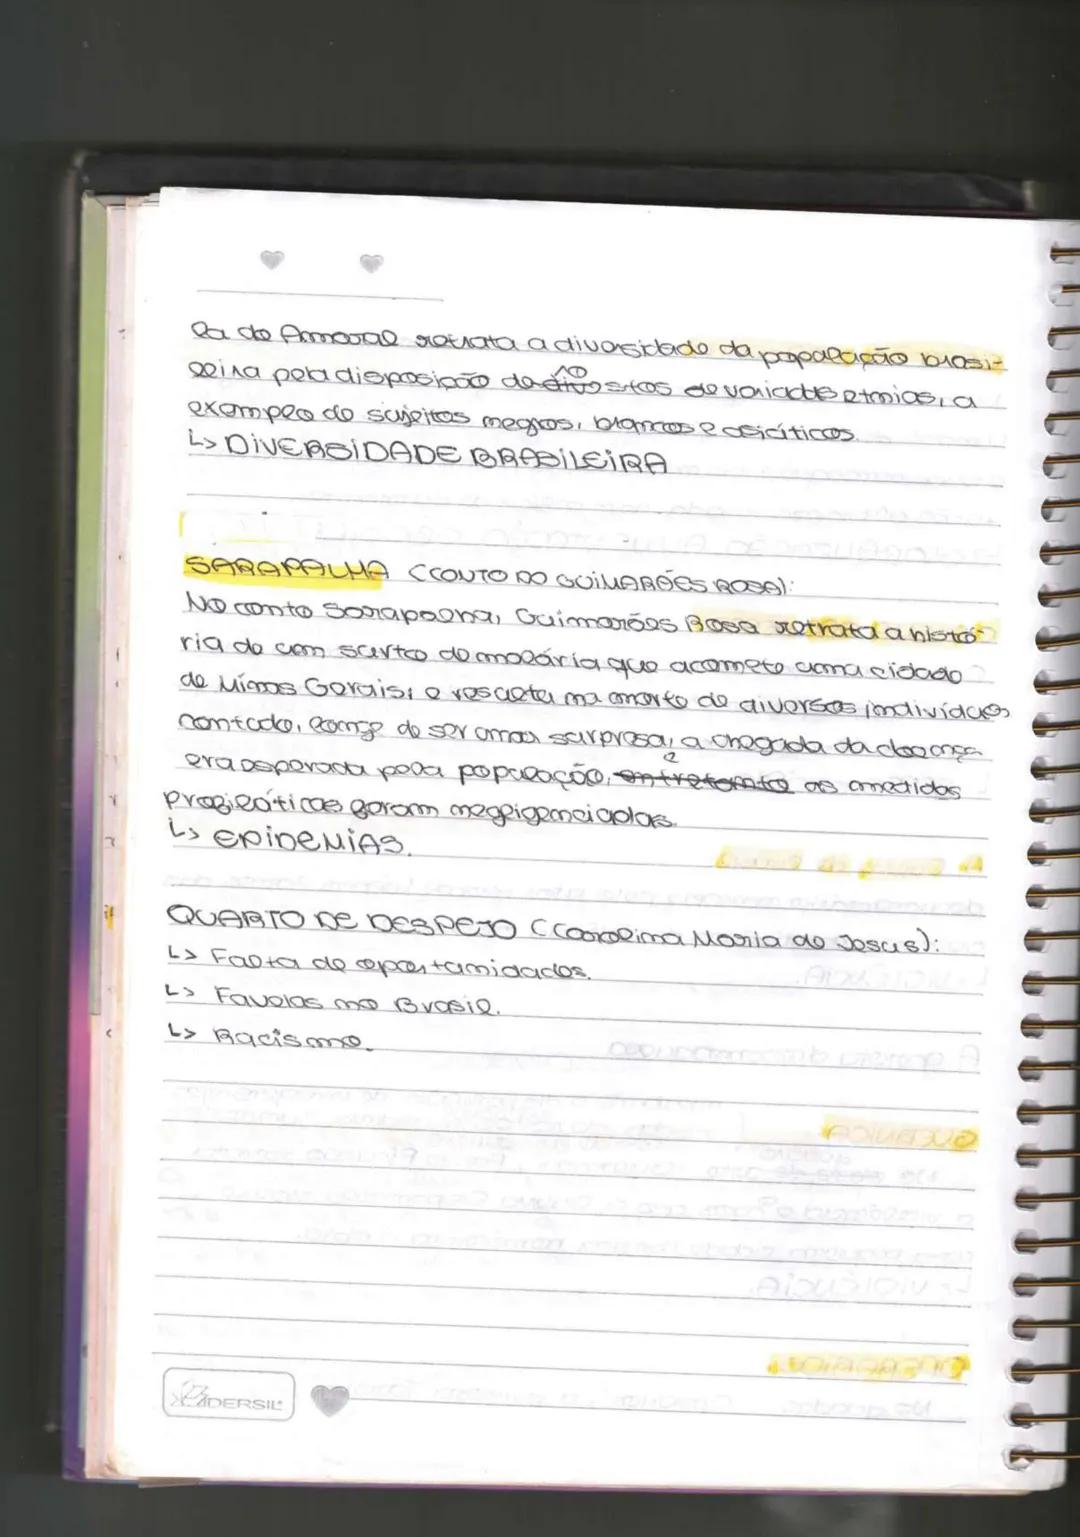 la do Amaral retrata a diversidade da população brasi-
leira pela disposição de rostos de variadas etnias, a
exemplo de sujeitos negros, brancos e asiáticos.
↳ DIVERSIDADE BRASILEIRA
SARAPALHA (CONTO DO GUIMARÃES ROSA):
No conto Sarapalha, Guimarães Rosa retrata a histó-
ria de um surto de malária que acomete uma cidade
de Minas Gerais, e resulta na morte de diversos indivíduos
contudo, longe de ser uma surpresa, a chegada da doença
era esperada pela população, entretanto as medidas
profiláticas foram negligenciadas.
↳ EPIDEMIAS.
QUARTO DE DESPEJO (Carolina Maria de Jesus):
↳ Falta de oportunidades.
↳ Favelas no Brasil.
↳ Racismo.